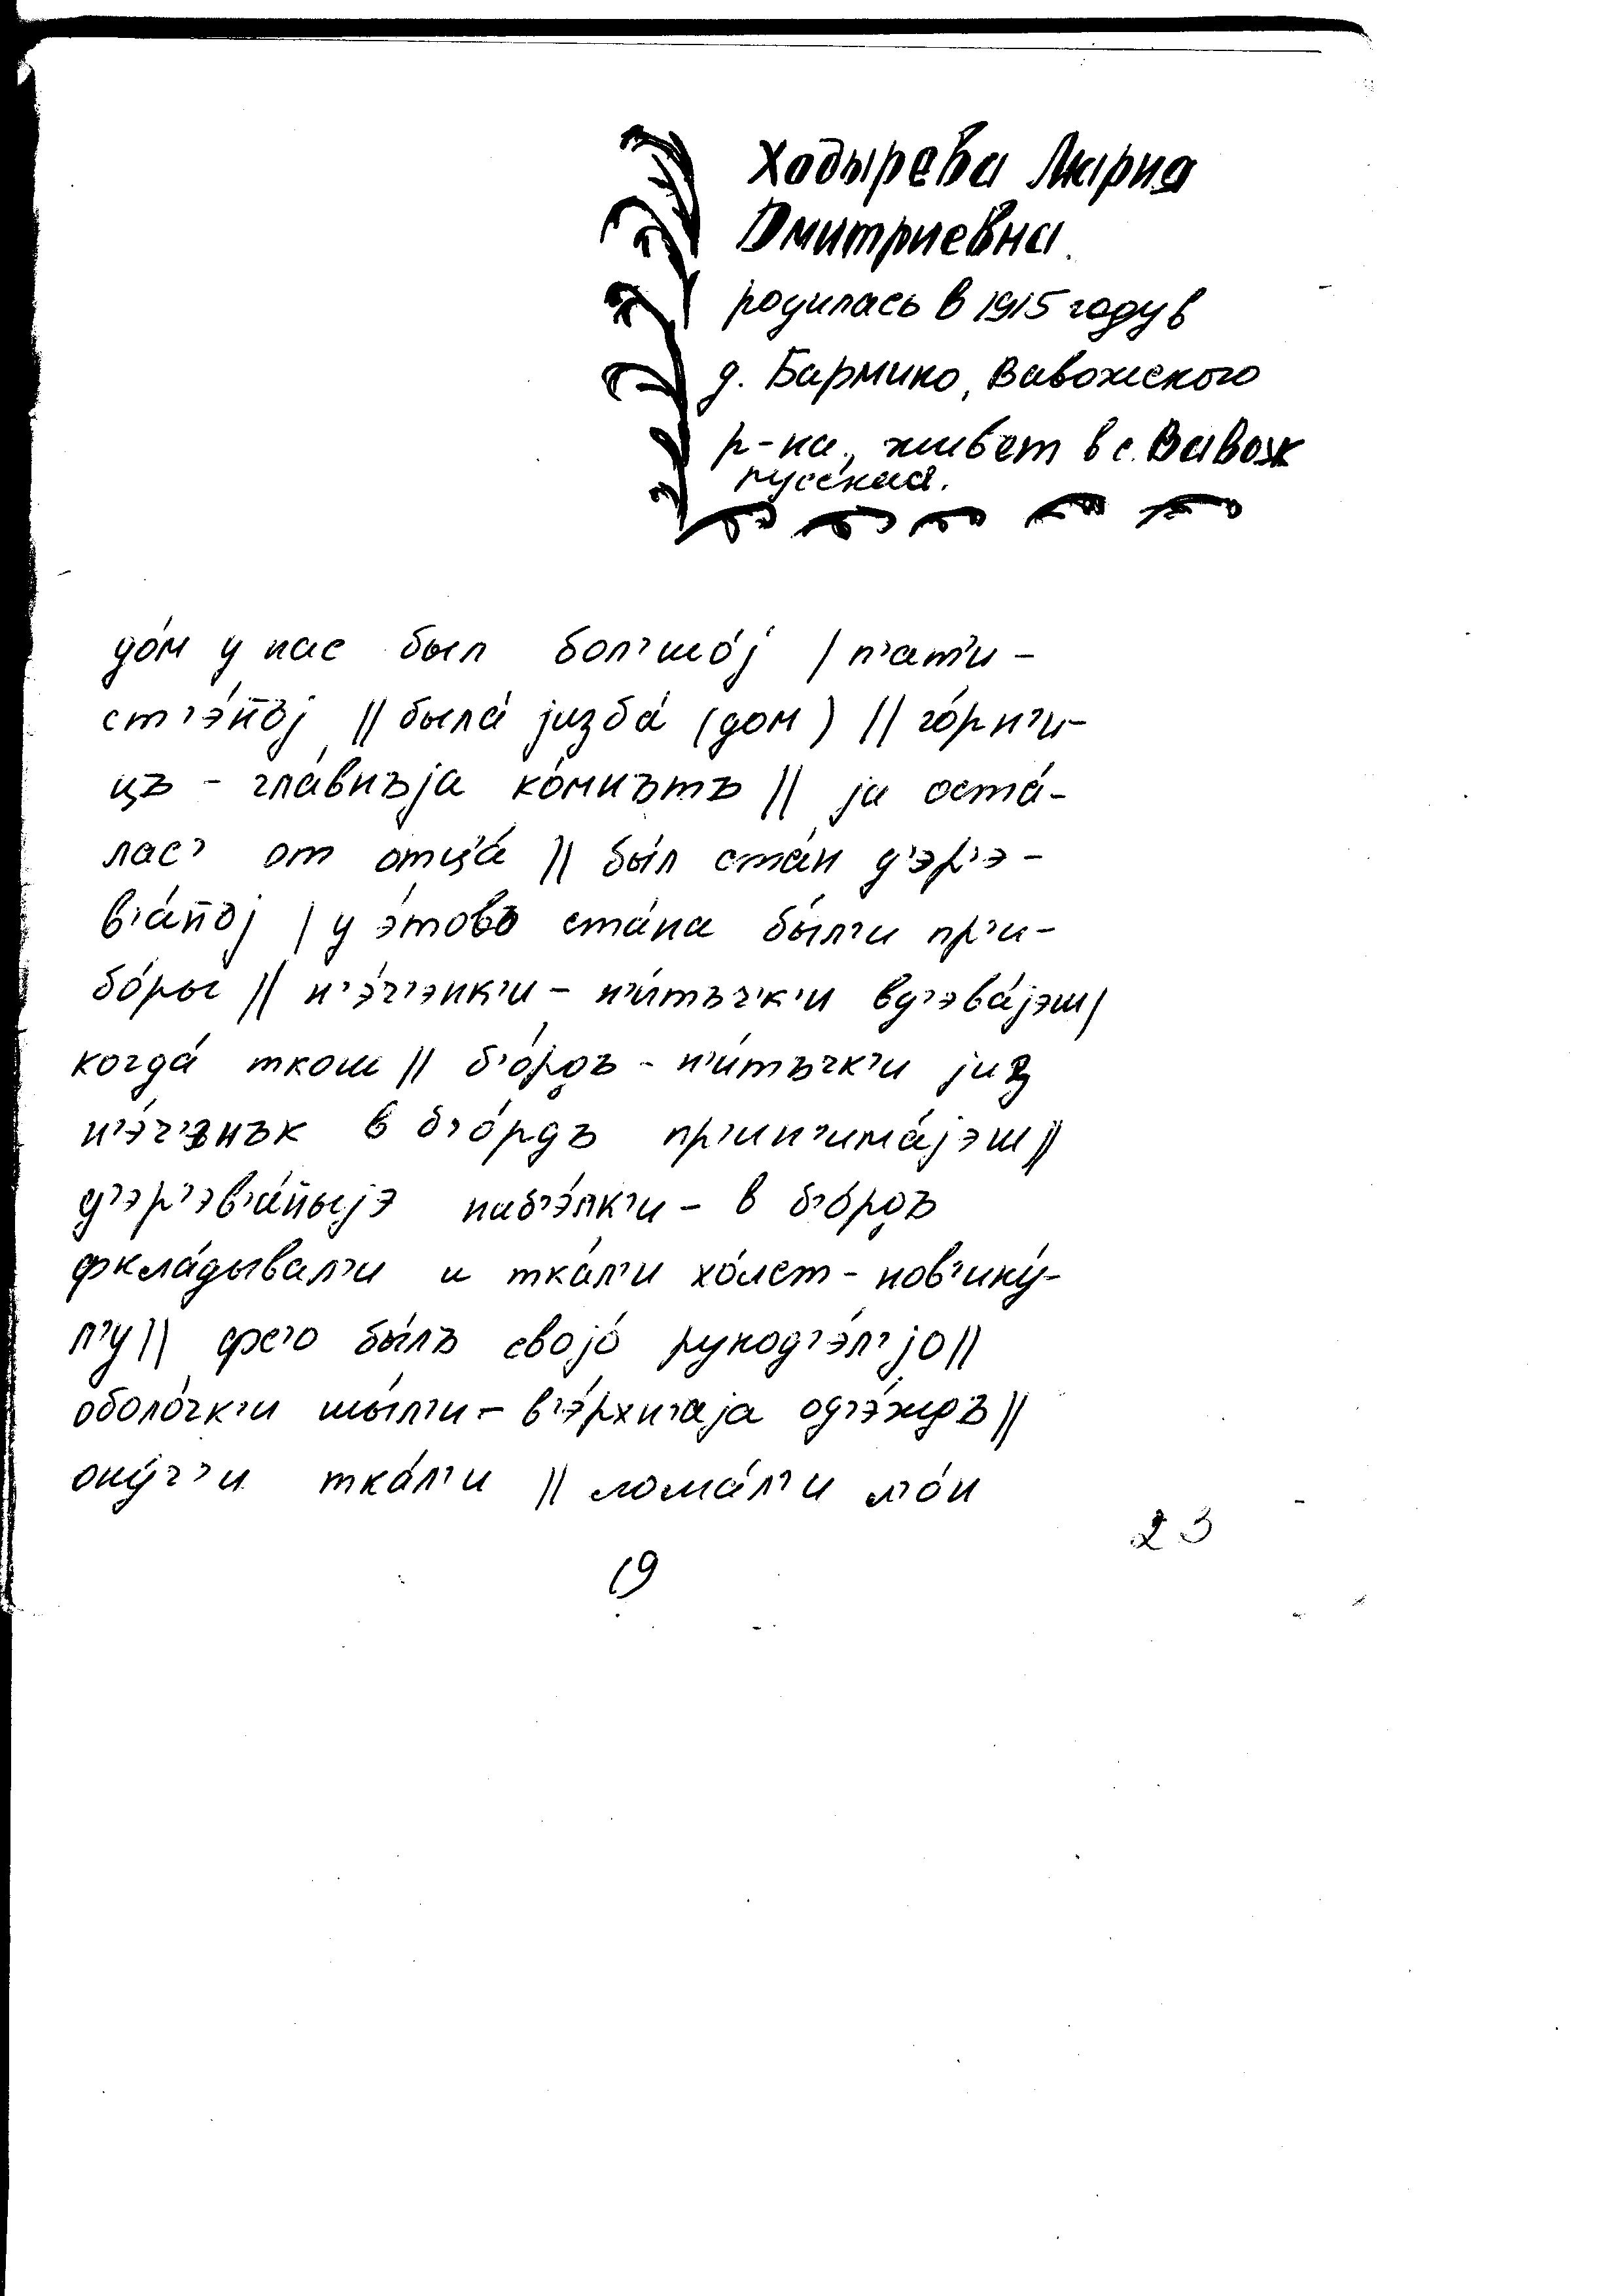 Ходырева Мария
Дмитриевна.
родилась в 1915 году в
д. Бармино, Вавожского
р-на., живет в с. Вавож
русская.
до́м у нас был бол'шо́j | п'ат'и-
ст'э́н̄ъj || была́ jизба́ (дом) || го́рн'и-
цъ - гла́внъjа ко́мнътъ || jа оста́-
лас' от отца́ || бы́л ста́н д'эр'э-
в'а́н̄ъj | у э́товъ ста́на бы́л'и пр'и-
бо́ры || н'э́ч'энк'и - н'и́тъчк'и вд'эва́jэш |
когда́ ткош || б'о́рдъ - н'и́тъчк'и jиз
н'э́ч'энък в б'о́рдъ пр'ин'има́jэш ||
д'эр'эв'а́н̄ыjэ наб'э́лк'и - в б'о́рдъ
фкла́дывал'и и тка́л'и хо́лст - нов'ину́-
п'у || фс'о бы́лъ своjо́ рукод'э́л'jо ||
оболо́чк'и шы́л'и - в'э́рхн'аjа од'э́ждъ ||
ону́ч'и тка́л'и || лома́л'и л'о́н
23
19